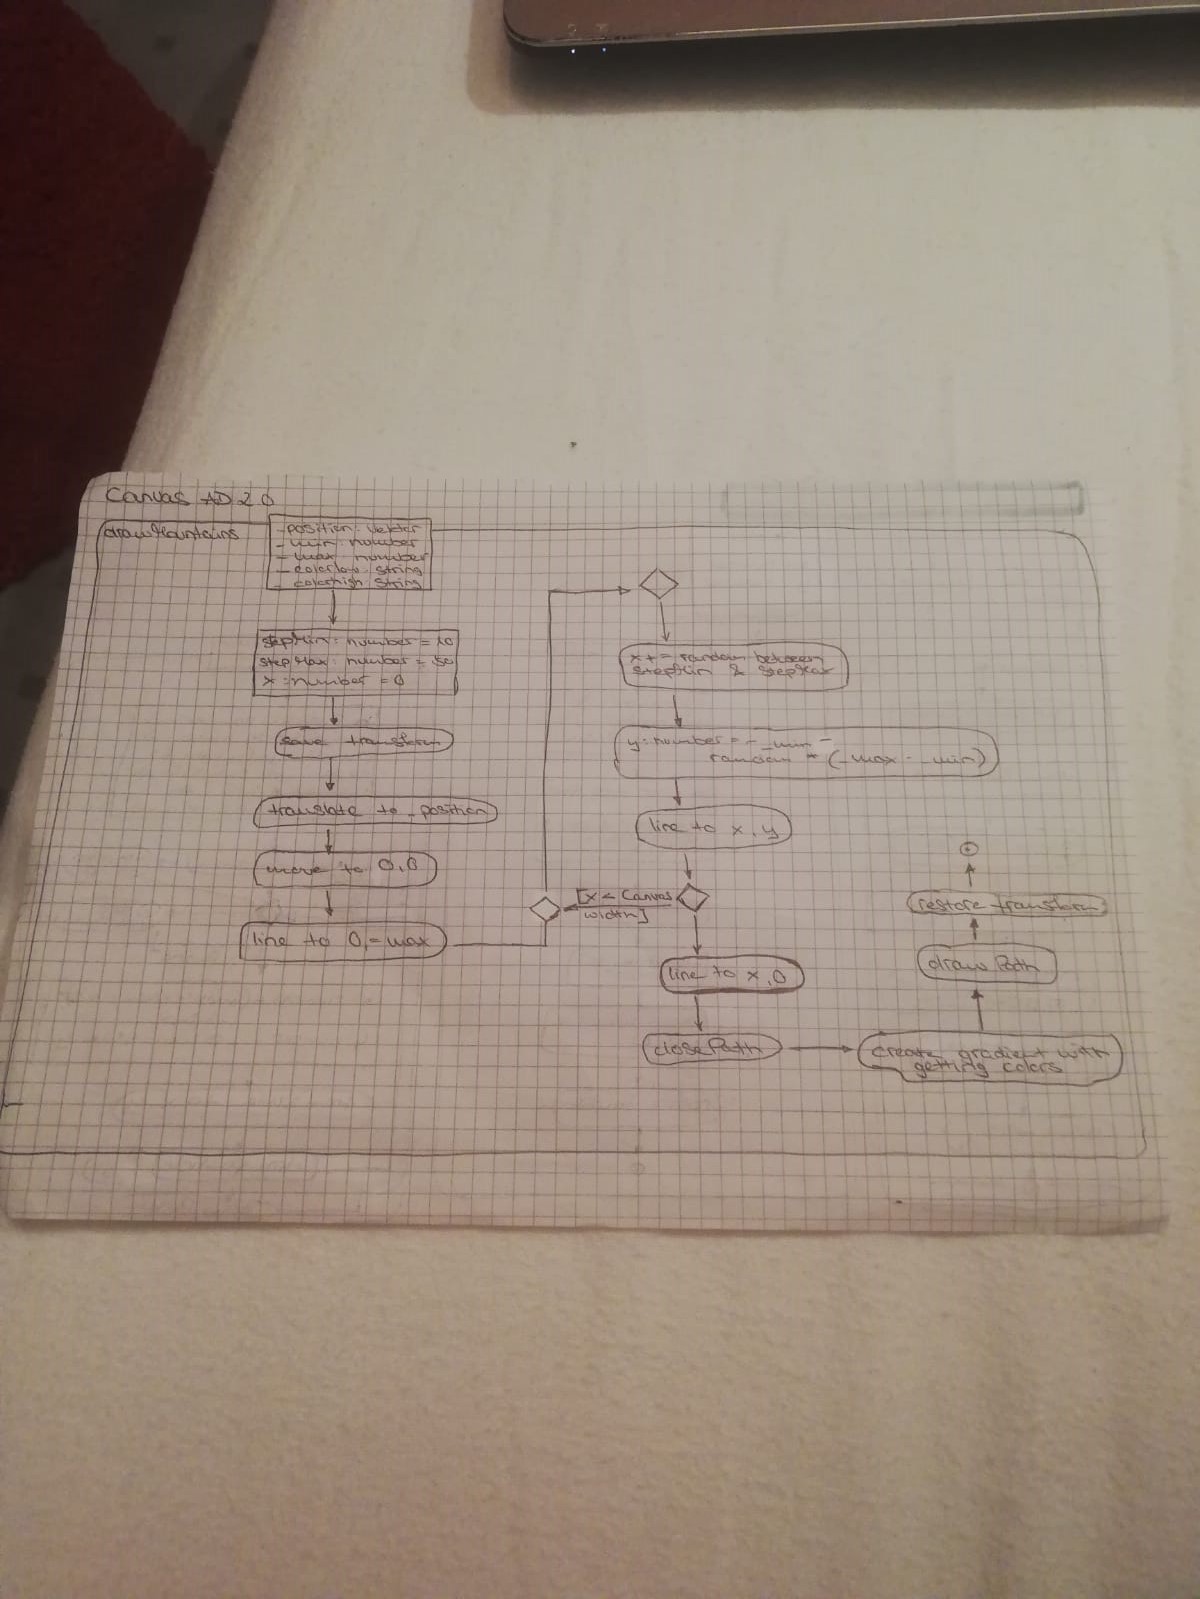 Canvas AD 2.0
drawMountains
_position: Vektor
_min: number
_max: number
_colorlow: String
_colorhigh: String
stepMin: number = 10
stepMax: number = 50
x: number = 0
save transform
translate to _position
move to 0,0
line to 0,-max
x += random between
stepMin & stepMax
y: number = - _min -
random * (_max - _min)
line to x,y
[x < Canvas
width]
line to x,0
closePath
create gradient with
getting colors
draw Path
restore transform